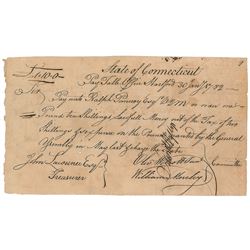 State of Connecticut
£1.10.0 Pay Table Office Hartford 30 Jany 1782
Sir
Pay unto Ralph Pomroy Esqr DQM or order one
Pound ten Shillings Lawfull Money out of the Tax of two
Shillings on the Pound granted by the General
Assembly in May last & charge the State
John Lawrence Esqr
Treasurer
William Moseley
Committee